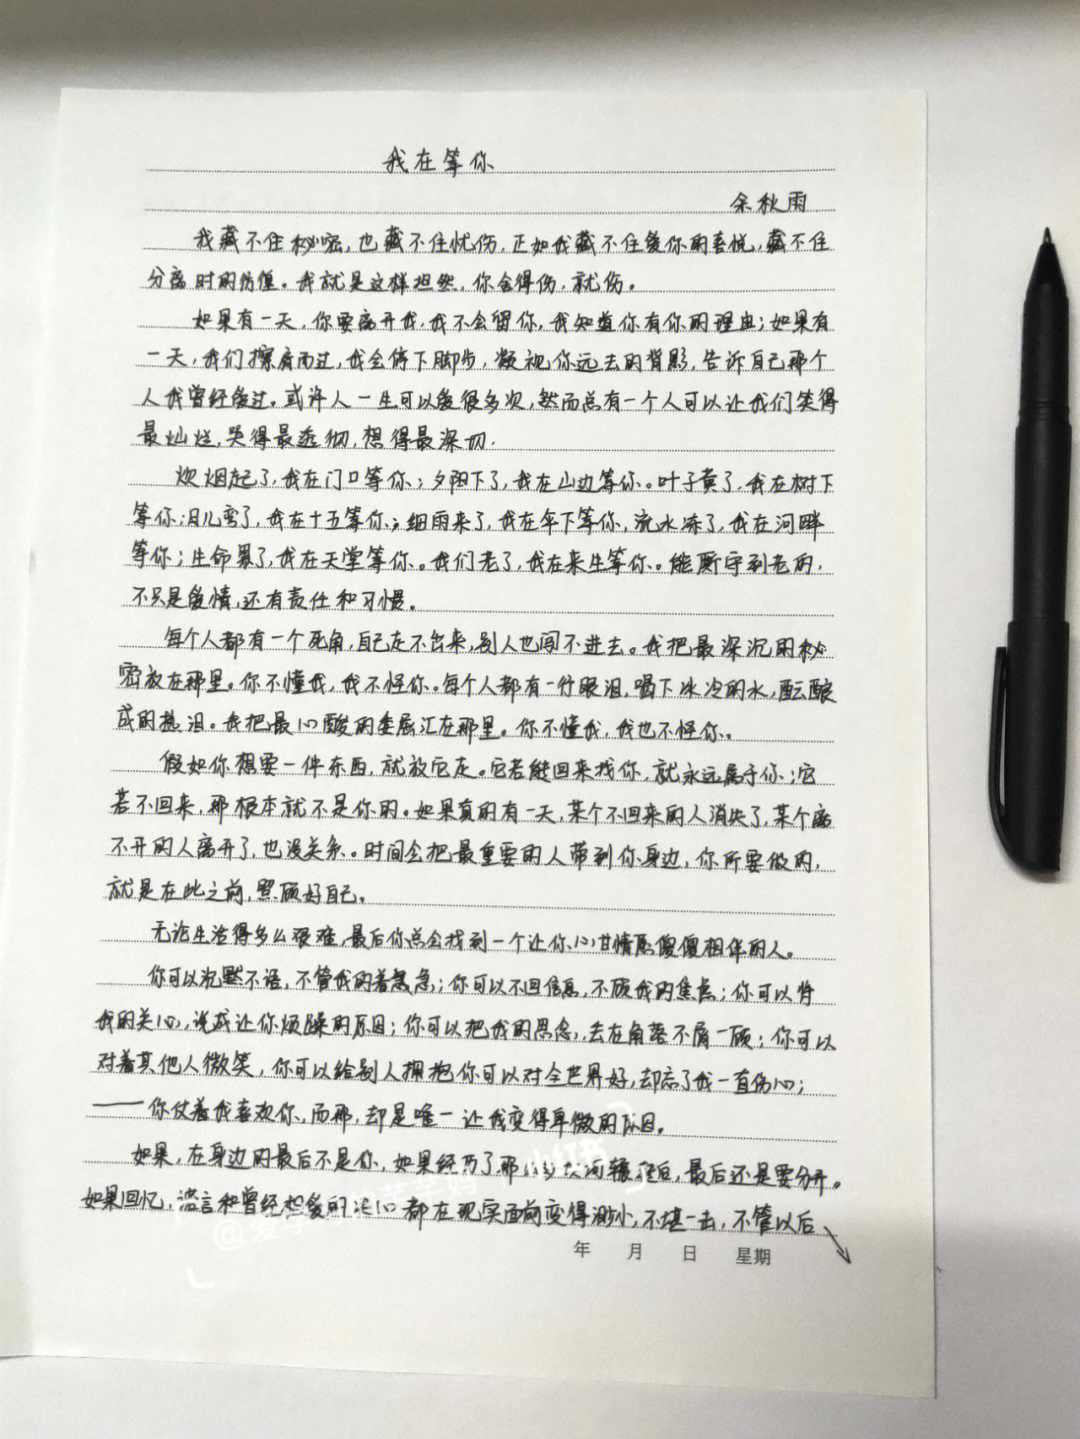 我在等你
余秋雨
我藏不住秘密,也藏不住忧伤,正如我藏不住爱你的喜悦,藏不住
分离时的彷徨。我就是这样坦然,你舍得伤,就伤。
如果有一天,你要离开我,我不会留你,我知道你有你的理由;如果有
一天,我们擦肩而过,我会停下脚步,凝视你远去的背影,告诉自己那个
人我曾经爱过。或许人一生可以爱很多次,然而总有一个人可以让我们笑得
最灿烂,哭得最透彻,想得最深切.
炊烟起了,我在门口等你;夕阳下了,我在山边等你。叶子黄了,我在树下
等你;月儿弯了,我在十五等你;细雨来了,我在伞下等你,流水冻了,我在河畔
等你;生命累了,我在天堂等你。我们老了,我在来生等你。能厮守到老的,
不只是爱情,还有责任和习惯。
每个人都有一个死角,自己走不出来,别人也闯不进去。我把最深沉的秘
密放在那里。你不懂我,我不怪你。每个人都有一行眼泪,喝下冰冷的水,酝酿
成的热泪。我把最心酸的委屈汇在那里。你不懂我,我也不怪你。
假如你想要一件东西,就放它走。它若能回来找你,就永远属于你;它
若不回来,那根本就不是你的。如果真的有一天,某个不回来的人消失了,某个离
不开的人离开了,也没关系。时间会把最重要的人带到你身边,你所要做的,
就是在此之前,照顾好自己。
无论生活得多么艰难,最后你总会找到一个让你心甘情愿傻傻相伴的人。
你可以沉默不语,不管我的着急;你可以不回信息,不顾我的焦虑;你可以将
我的关心,说成让你烦躁的原因;你可以把我的思念,丢在角落不屑一顾;你可以
对着其他人微笑,你可以给别人拥抱你可以对全世界好,却忘了我一直伤心;
——你仗着我喜欢你,而那,却是唯一让我变得卑微的原因。
如果,在身边的最后不是你,如果经历了那 后,最后还是要分开。
如果回忆,诺言和曾经相爱的决心都在现实面前变得渺小,不堪一击,不管以后
年 月 日 星期
小红书